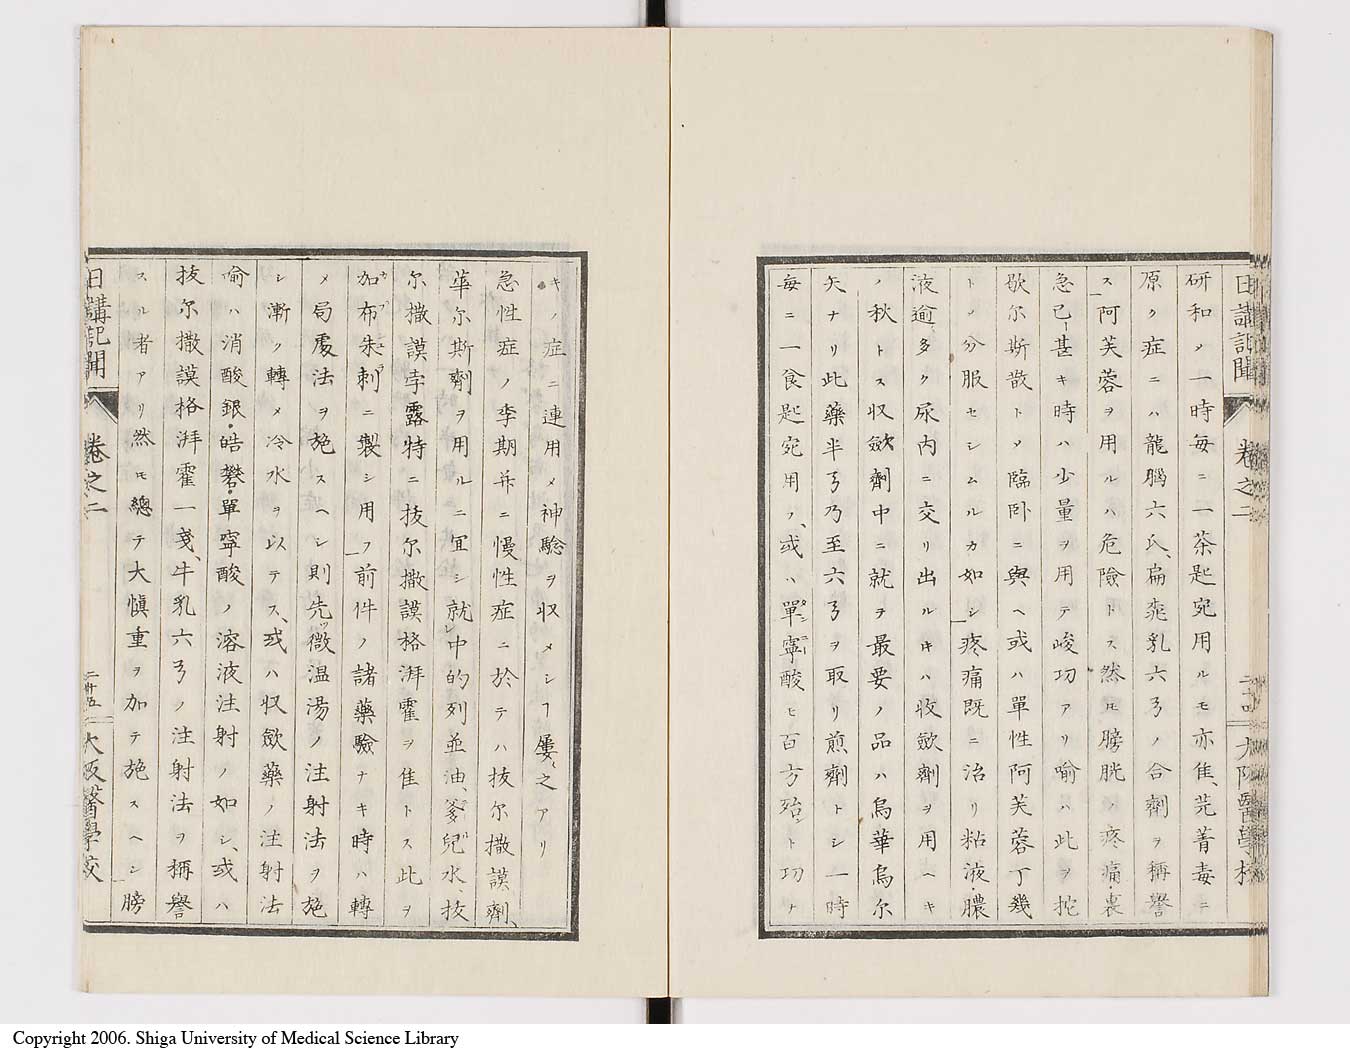 日講記聞 卷之二 二十四 大阪醫學校
研和ノ一時每ニ一茶匙宛用ルモ亦佳、芫菁毒ニ
原ク症ニハ龍腦六氏、扁桃乳六弓ノ合劑ヲ稱譽
ス阿芙蓉ヲ用ルハ危險トス然ㇾ𪜈膀胱ノ疼痛・裏
急己ニ甚キ時ハ少量ヲ用テ峻功アリ喻ハ此ヲ挖
歇尔斯散トメ臨卧ニ與ヘ或ハ單性阿芙蓉丁幾
トノ分服セシムルカ如シ疼痛既ニ治リ粘液・膿
液逾多ク尿内ニ交リ出ルキハ收斂劑ヲ用ヘキ
ノ秋トス収斂劑中ニ就ヲ最要ノ品ハ烏華烏尔
矢ナリ此藥半弓乃至六弓ヲ取リ煎劑トシ一時
每ニ一食匙宛用フ、或ハ單寧酸ヒ百方殆ント功ナ
キノ症ニ連用メ神驗ヲ収メシヿ屢之アリ
急性症ノ季期并ニ慢性症ニ於テハ抜尔撒謨劑、
華尔斯劑ヲ用ルニ宜シ就中的列並油、爹兒水、抜
尔撒謨孛露特ニ抜尔撒謨格湃霍ヲ佳トス此ヲ
加布朱刺ニ製シ用フ前件ノ諸藥驗ナキ時ハ轉
メ局處法ヲ施スヘシ則先ツ微温湯ノ注射法ヲ施
シ漸ク轉メ冷水ヲ以テス、或ハ収斂藥ノ注射法
喻ハ消酸銀・皓礬・單寧酸ノ溶液注射ノ如シ、或ハ
抜尔撒謨格湃霍一戔、牛乳六弓ノ注射法ヲ稱譽
スル者アリ然モ總テ大愼重ヲ加テ施スヘシ膀
日講記聞 卷之二 二十五 大阪醫學校
Copyright 2006. Shiga University of Medical Science Library